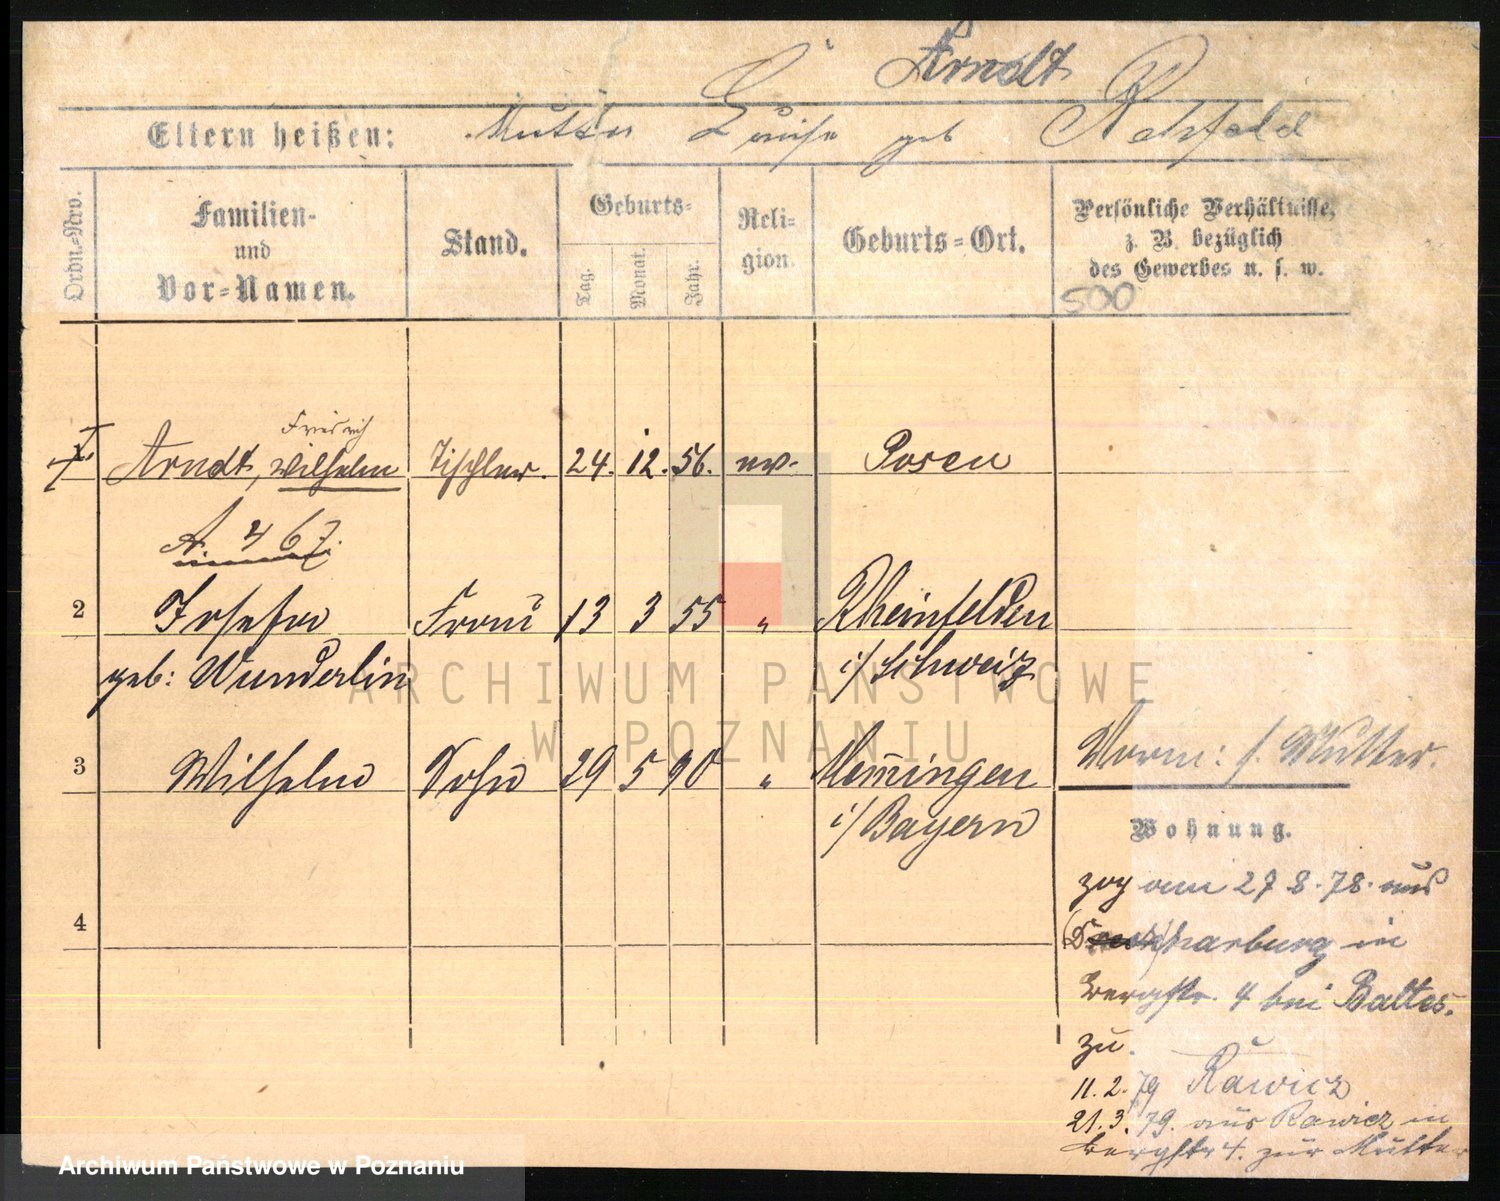 Arndt
Eltern heißen: Mutter Louise geb Rehfeld
Ordn.-Nro.
Familien- und Vor-Namen.
Stand.
Geburts-
Tag.
Monat.
Jahr.
Religion.
Geburts-Ort.
Persönliche Verhältnisse,
z. B. bezüglich
des Gewerbes u. s. w.
500
Friedrich
Arndt, Wilhelm Tischler. 24. 12. 56. ev. Posen
A 467.
2 Josefa Frau 13 3 55 " Rheinfelden
geb: Wunderlin i/ Schweiz
3 Wilhelm Sohn 29 5 90 " Memingen
i/ Bayern
Vorm: s. Mutter.
Wohnung.
zog am 27 8. 78. aus
harburg in
Bergstr. 4 bei Baltes.
zu.
11. 2. 79 Rawicz
21. 3. 79. aus Rawicz in
Bergstr 4. zur Mutter
4
ARCHIWUM PAŃSTWOWE
W POZNANIU
Archiwum Państwowe w Poznaniu